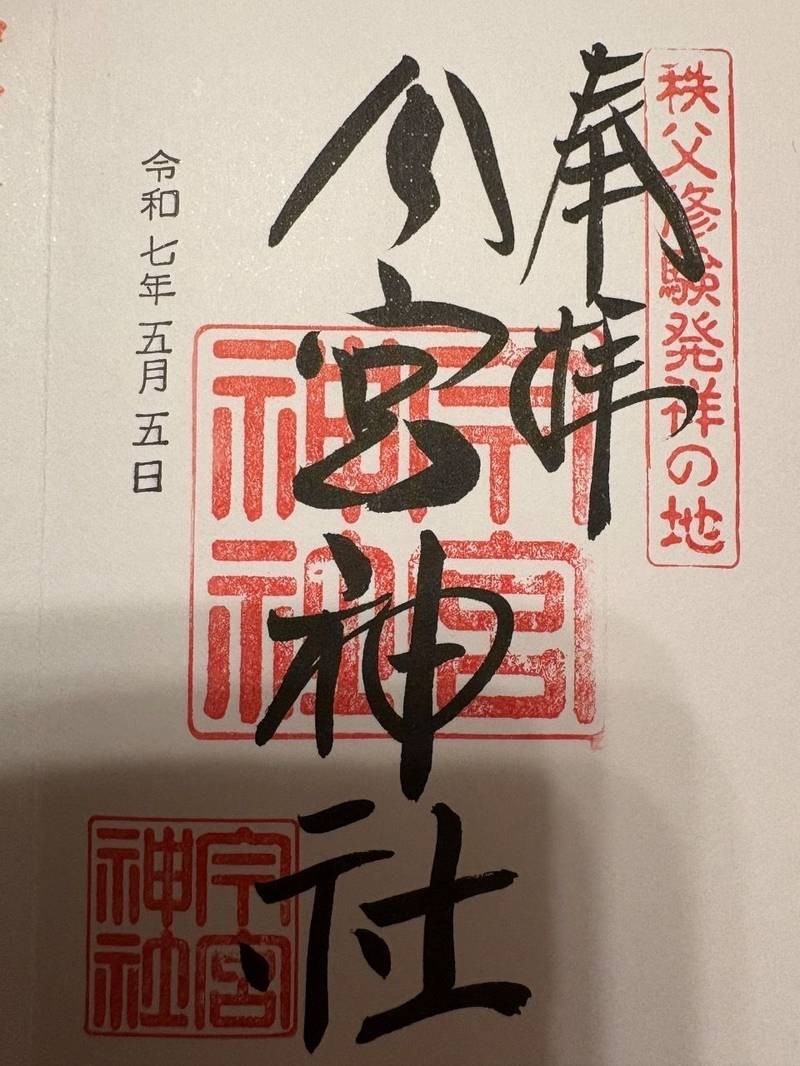 秩父修験発祥の地
奉拝
今宮神社
今宮
神社
令和七年五月五日
今宮
神社